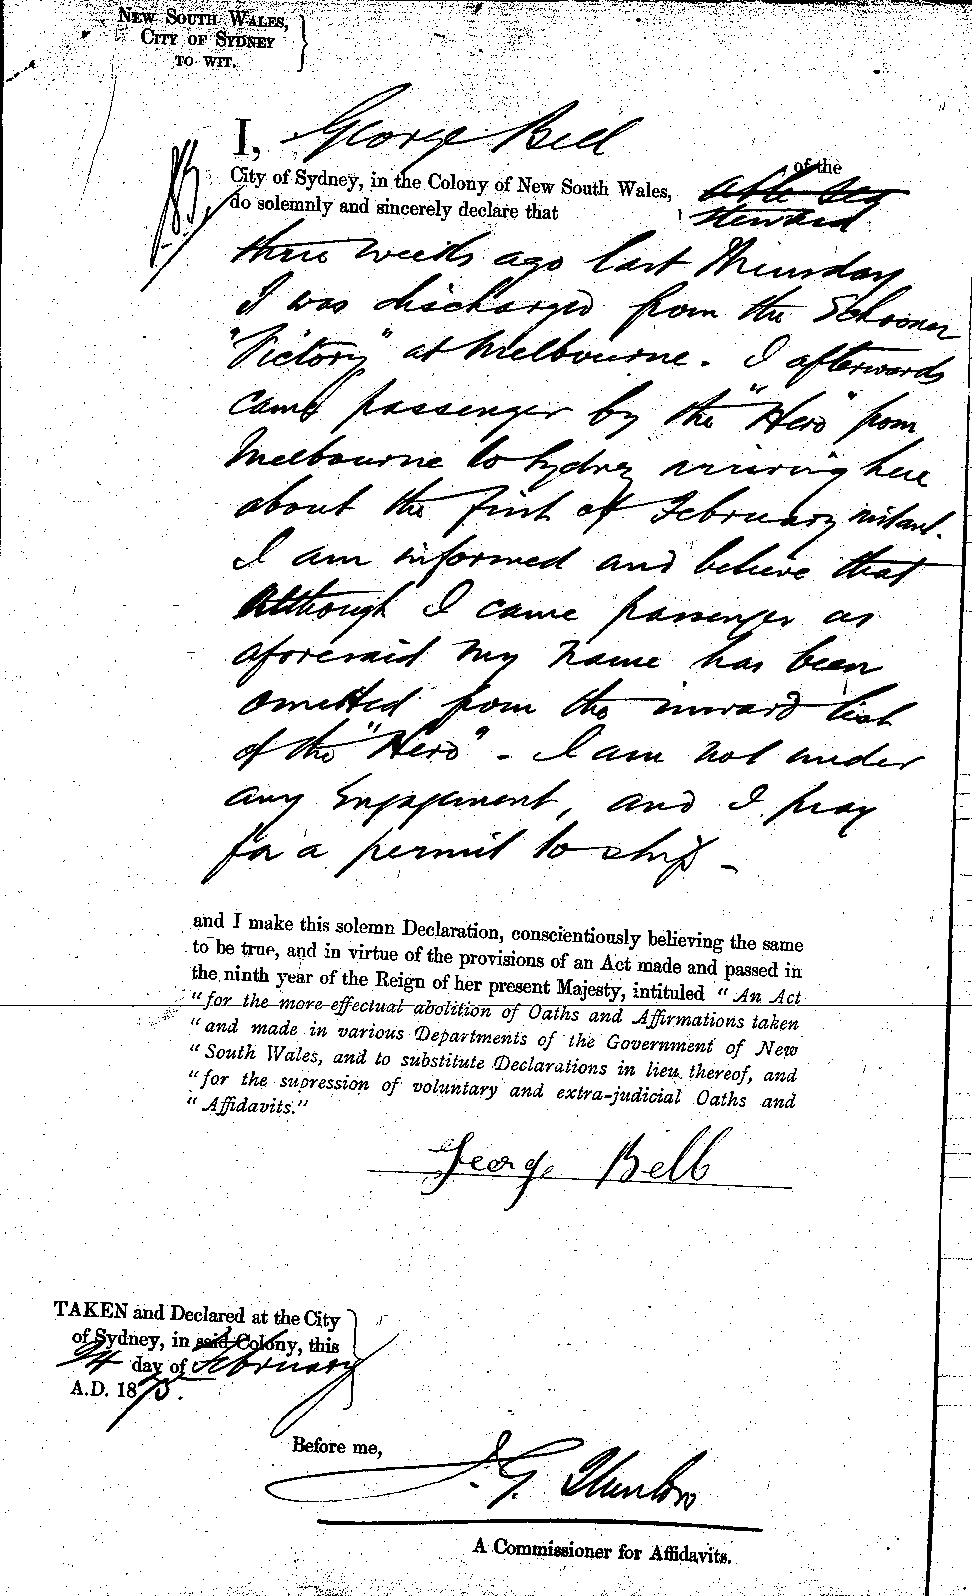 NEW SOUTH WALES,
CITY OF SYDNEY
TO WIT.
I, George Bell
of the
City of Sydney, in the Colony of New South Wales, able sea
do solemnly and sincerely declare that steward
three weeks ago last Thursday
I was discharged from the Schooner
"Victory" at Melbourne. I afterwards
came passenger by the "Hero" from
Melbourne to Sydney arriving here
about the first of February instant.
I am informed and believe that
Although I came passenger as
aforesaid my name has been
omitted from the inward list
of the "Hero" - I am not under
any Engagement, and I pray
for a permit to ship -
and I make this solemn Declaration, conscientiously believing the same
to be true, and in virtue of the provisions of an Act made and passed in
the ninth year of the Reign of her present Majesty, intituled "An Act
"for the more effectual abolition of Oaths and Affirmations taken
"and made in various Departments of the Government of New
"South Wales, and to substitute Declarations in lieu thereof, and
"for the supression of voluntary and extra-judicial Oaths and
"Affidavits."
George Bell
TAKEN and Declared at the City
of Sydney, in said Colony, this
24 day of February
A.D. 1875.
Before me,
A Commissioner for Affidavits.